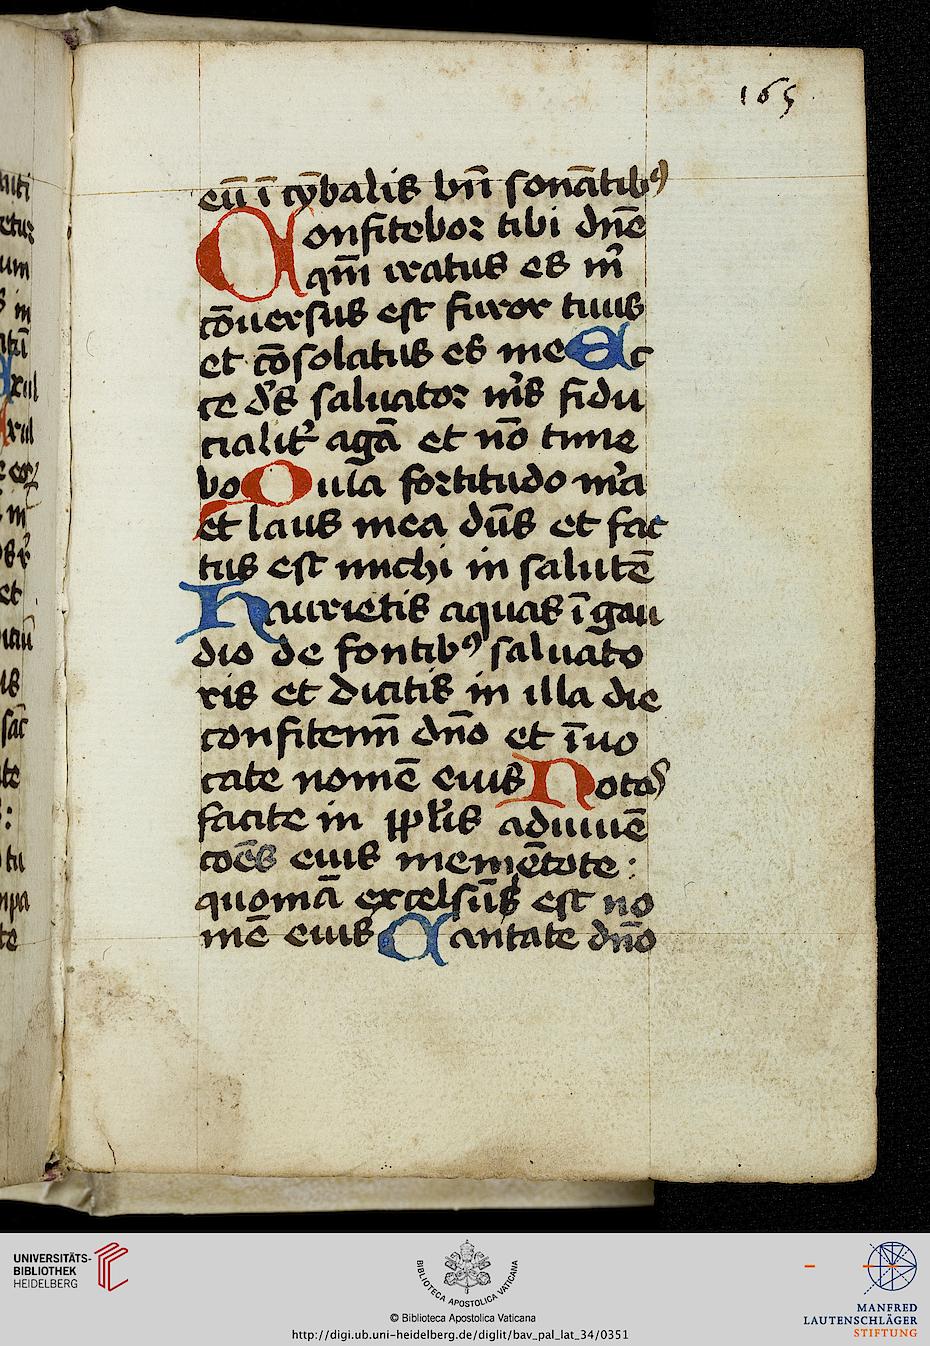 165
eū ī cȳbalis bn̄ sonātibꝰ
Confitebor tibi dn̄e
qm̄ iratus es m̄
cōuersus est furor tuus
et cōsolatus es me Ec
ce ds̄ saluator ms̄ fidu
cialit̄ agā et nō time
bo Quīa fortitudo m̄a
et laus mea dn̄s et fac
tus est michi in salutē
Haurietis aquas ī gau
dio de fontibꝰ saluato
ris et dicitis in illa die
confitemī dn̄o et īuo
cate nomē eius Notas
facite in ppl̄is aduiuē
cōes eius memētote :
quoniā excelsūs est no
mē eius Cantate dn̄o
UNIVERSITÄTS-
BIBLIOTHEK
HEIDELBERG
BIBLIOTECA APOSTOLICA VATICANA
© Biblioteca Apostolica Vaticana
http://digi.ub.uni-heidelberg.de/diglit/bav_pal_lat_34/0351
MANFRED
LAUTENSCHLÄGER
STIFTUNG